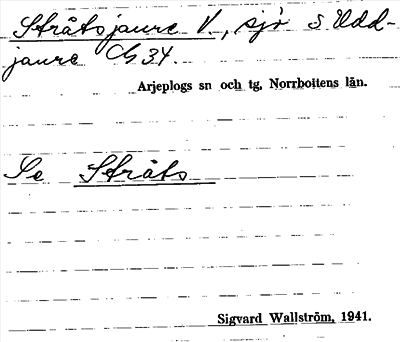 Stråtsjaure V., sjö s Udd-
jaure Cb 34.
Arjeplogs sn och tg, Norrbottens län.
Se Stråts
Sigvard Wallström, 1941.